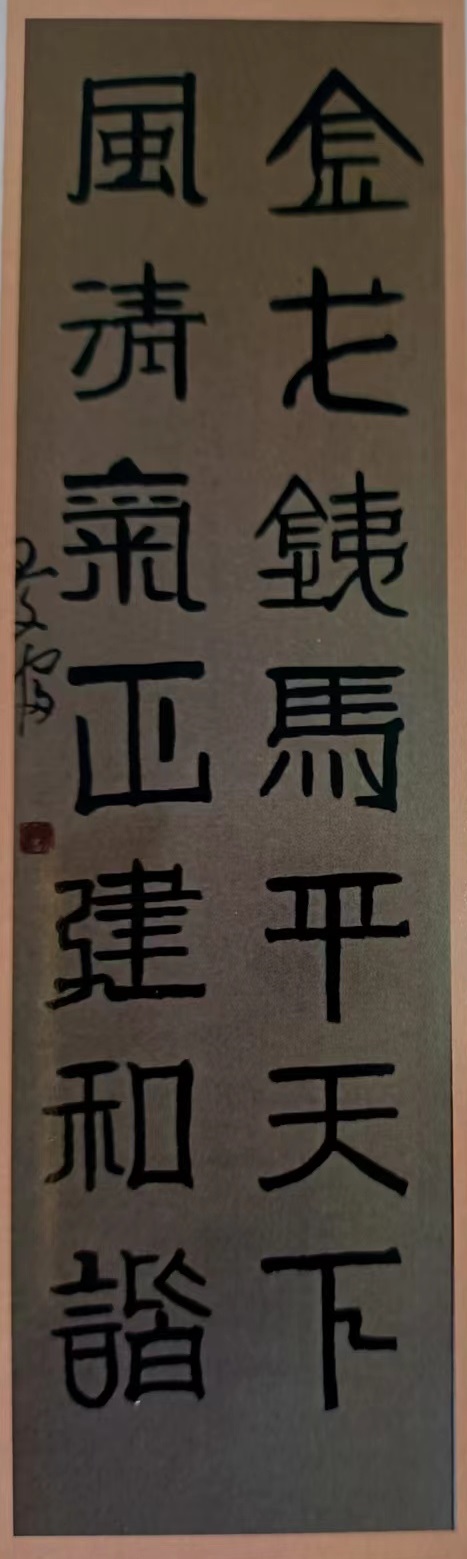 金戈鐵馬平天下
風清氣正建和諧